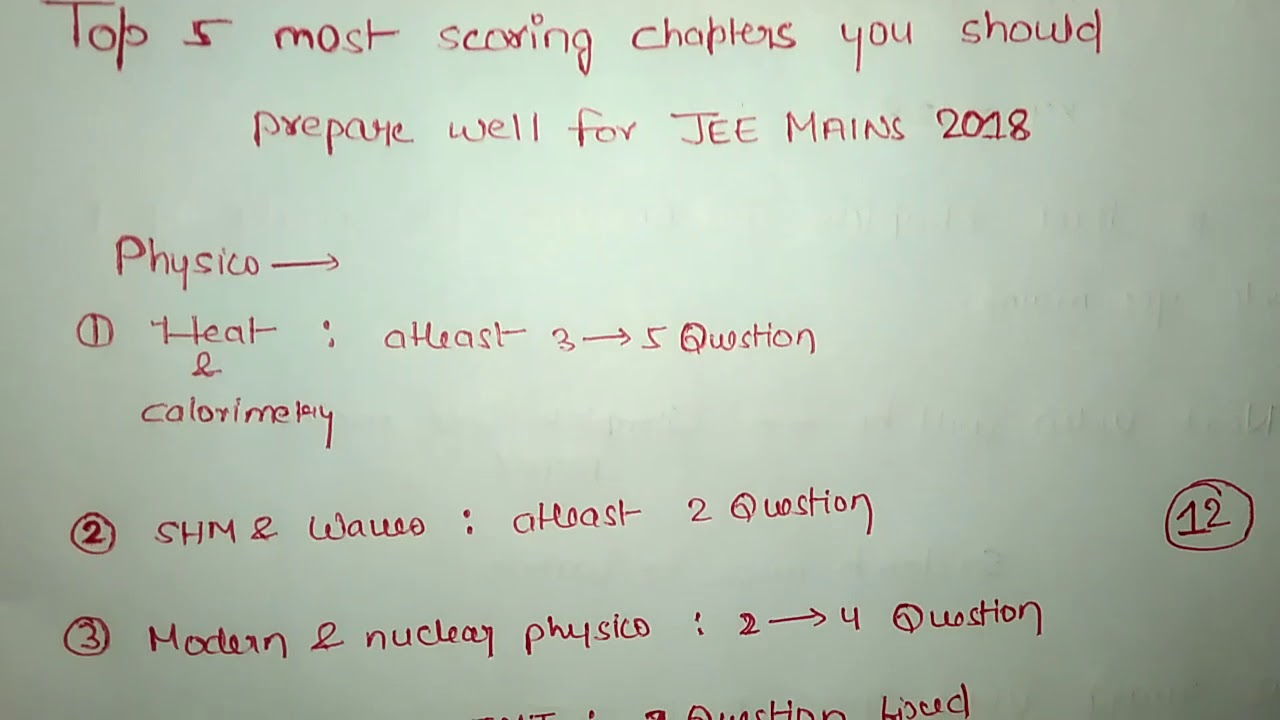 Top 5 most scoring chapters you should
prepare well for JEE MAINS 2018
Physics →
① Heat : atleast 3 → 5 Question
&
calorimetry
② SHM & Waves : atleast 2 Question
12
③ Modern & nuclear physics : 2 → 4 Question
: 2 Question fixed